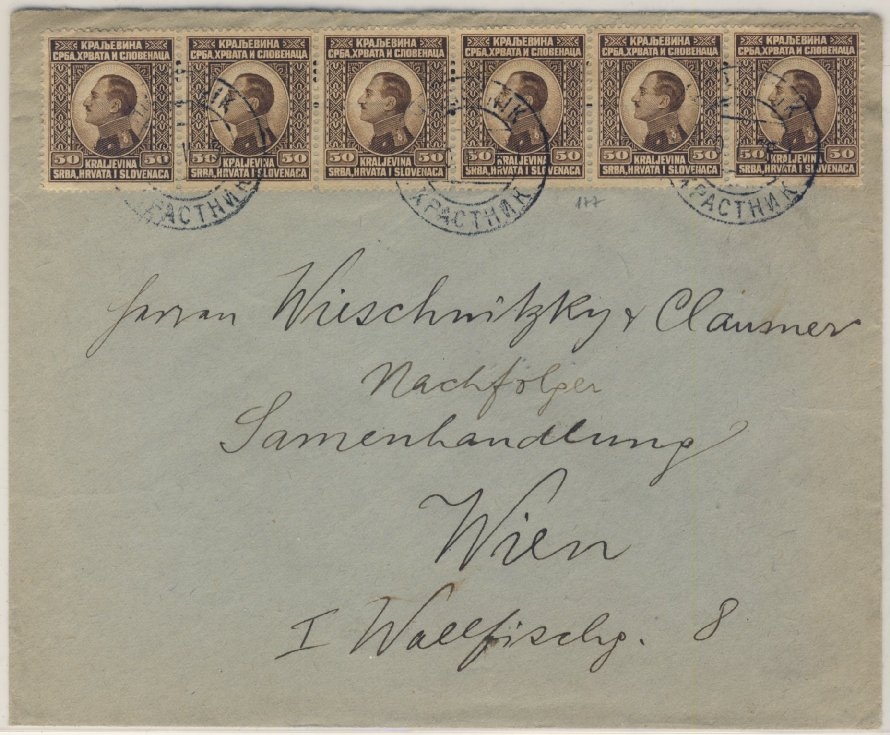 КРАЉЕВИНА КРАЉЕВИНА КРАЉЕВИНА КРАЉЕВИНА КРАЉЕВИНА КРАЉЕВИНА
СРБА, ХРВАТА И СЛОВЕНАЦА СРБА, ХРВАТА И СЛОВЕНАЦА СРБА, ХРВАТА И СЛОВЕНАЦА СРБА, ХРВАТА И СЛОВЕНАЦА СРБА, ХРВАТА И СЛОВЕНАЦА СРБА, ХРВАТА И СЛОВЕНАЦА
50 KRALJEVINA 50 50 KRALJEVINA 50 50 KRALJEVINA 50 50 KRALJEVINA 50 50 KRALJEVINA 50 50 KRALJEVINA 50
SRBA, HRVATA I SLOVENACA SRBA, HRVATA I SLOVENACA SRBA, HRVATA I SLOVENACA SRBA, HRVATA I SLOVENACA SRBA, HRVATA I SLOVENACA SRBA, HRVATA I SLOVENACA
РАСТНИК ХРАСТНИК ХРАСТНИК
177
Herren Wieschnitzky & Clausner
Nachfolger
Samenhandlung
Wien
I Wallfischg. 8